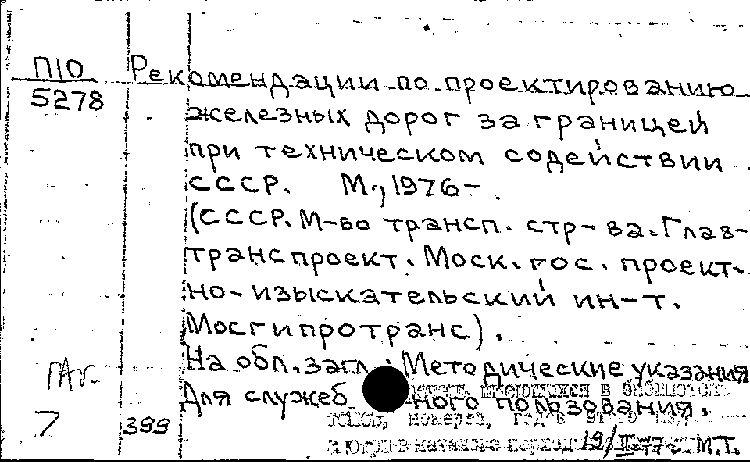 П10 Рекомендации по проектированию
5278 железных дорог за границей
при техническом содействии
СССР. М., 1976-.
(СССР. М-во трансп. стр-ва. Глав-
транспроект. Моск. гос. проект-
но-изыскательский ин-т.
Мосгипротранс).
На обл. загл.: Методические указания
Для служеб ного пользования.
7 399 19/II-77 г. М.Т.